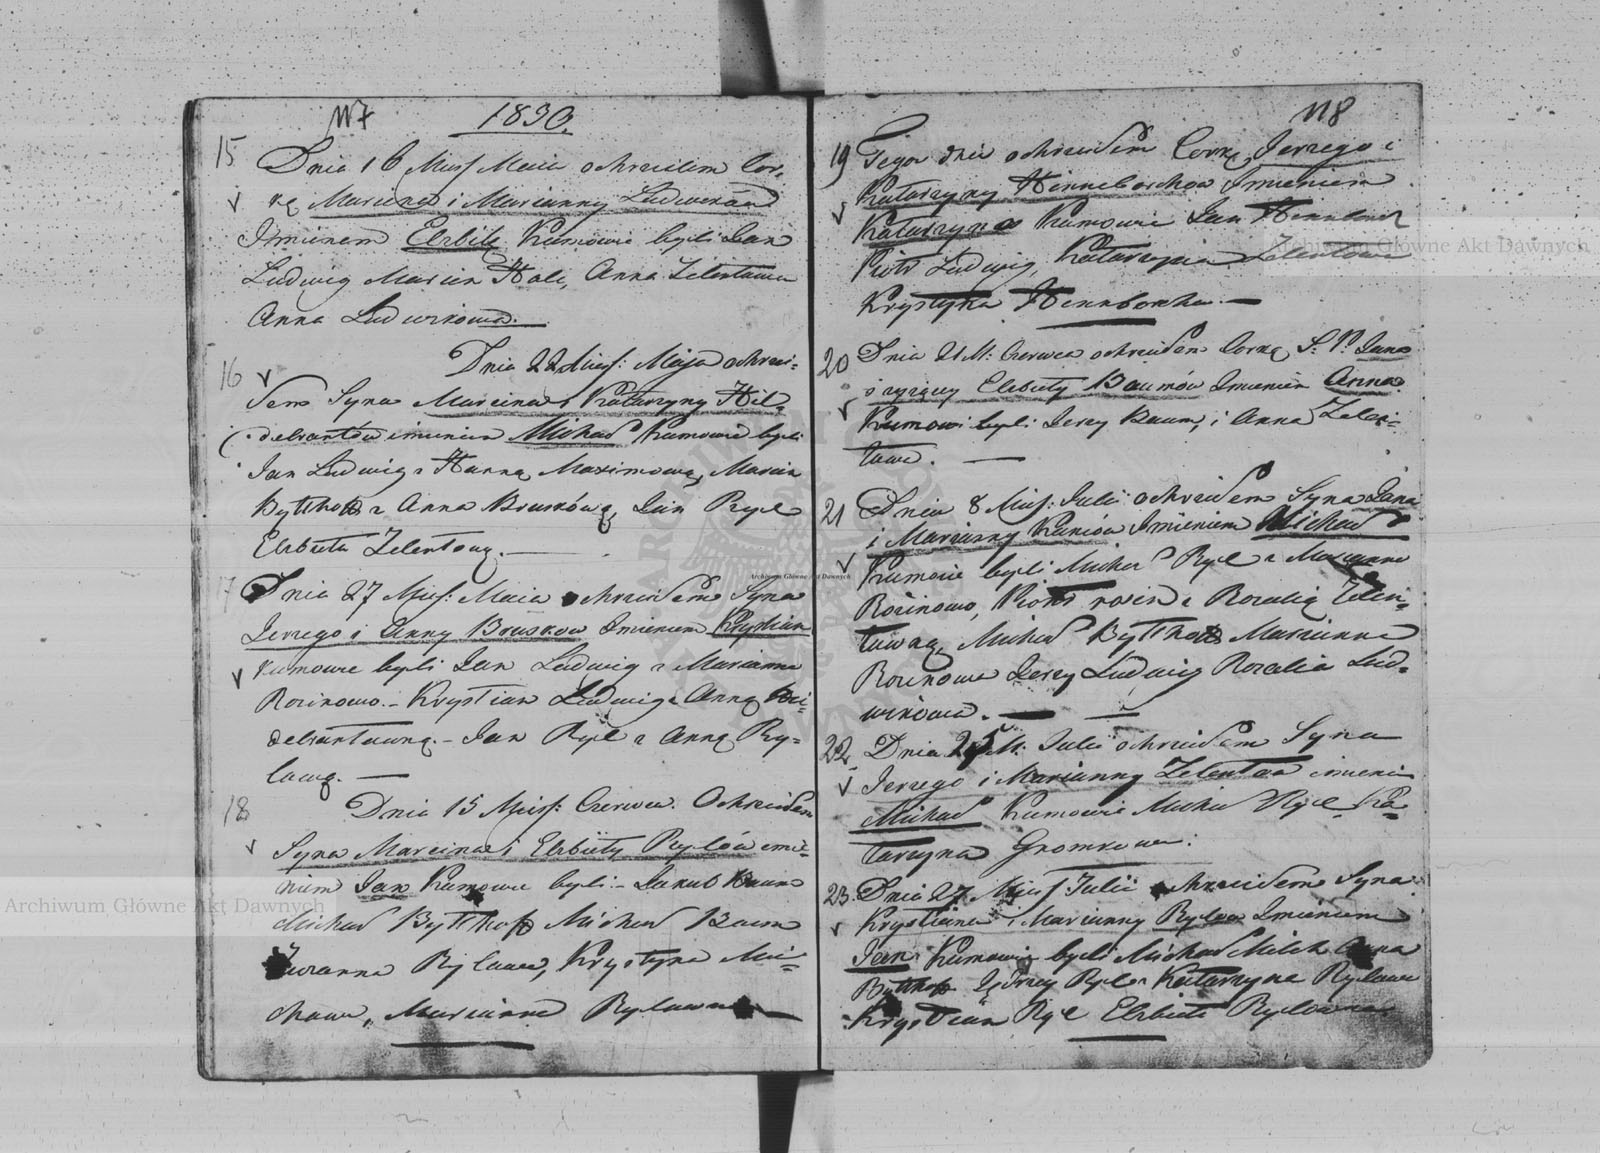 117 1830.
15 Dnia 16 Mies Maia ochrzcilem Cor-
kę Marcina i Marianny Ludwików
Imieniem Elzbitę Kumowie byli Jan
Ludwig Marcin Hole, Anna Zelentawa
Anna Ludwikowa.
16 Dnia 22 Mies: Maja ochrzci-
łem Syna Marcina i Katarzyny Hil-
debrantów imieniem Michał Kumowie byli
Jan Ludwig z Hanną Maximową, Marcin
Byttkoff z Anną Bruskówą, Jan Ryl z
Elzbieta Zelentową.
17 Dnia 27 Mies: Maia ochrzciłem Syna
Jerzego i Anny Brusków Imieniem Krystian
Kumowie byli Jan Ludwig z Marianna
Rozinowo.- Krystian Ludwig z Anną Hil-
debrantawną.- Jan Ryl z Anną Ry-
lawą.
18 Dnia 15 Mies: Czerwca. Ochrzciłem
Syna Marcina i Elzbiety Rylów imie-
niem Jan Kumowie byli - Jakub Baum
Michał Byttkoff Michał Baum
Zuzanna Rylawa, Krystyna Mi-
chawa, Marianna Rylawna
118
19 Tegoz dnia ochrzciłem Corkę Jerzego i
Katarzyny Hinneborchów Imieniem
Katarzyna Kumowie Jan
Piotr Ludwig, Katarzyna Zelentowa
Krystyna Hennborcha.
20 Dnia 21 M: Czerwca ochrzciłem Corkę S: P: Jana
i Elzbiety Baumów Imieniem Anna
Kumowi byli Jerzy Baum, i Anna Zelen-
tawa.
21 Dnia 8 Mies: Julii ochrzciłem Syna Jana
i Marianny Imieniem Michał
Kumowie byli Michał Ryl z Marianno
Rozinowo, Piotr z Rozalią Zelen-
tawą, Michał Byttkoff Marianna
Rozinowa Jerzy Ludwig Rozalia Lud-
wikowa.
22. Dnia 25 M: Julii ochrzciłem Syna
Jerzego i Marianny Zelentów imieniem
Michał Kumowie Michał Ryl, Ka-
tarzyna Gromkowa.
23. Dnia 27 Mies Julii ochrzciłem Syna
Krystiana i Marianny Rylów Imieniem
Jan Kumowie byli Michał Milch Anna
Byttkoff Jerzy Ryl z Katarzyna Rylawa
Krystian Ryl Elzbieta Rylówna
Archiwum Główne Akt Dawnych
Archiwum Główne Akt Dawnych
Archiwum Główne Akt Dawnych